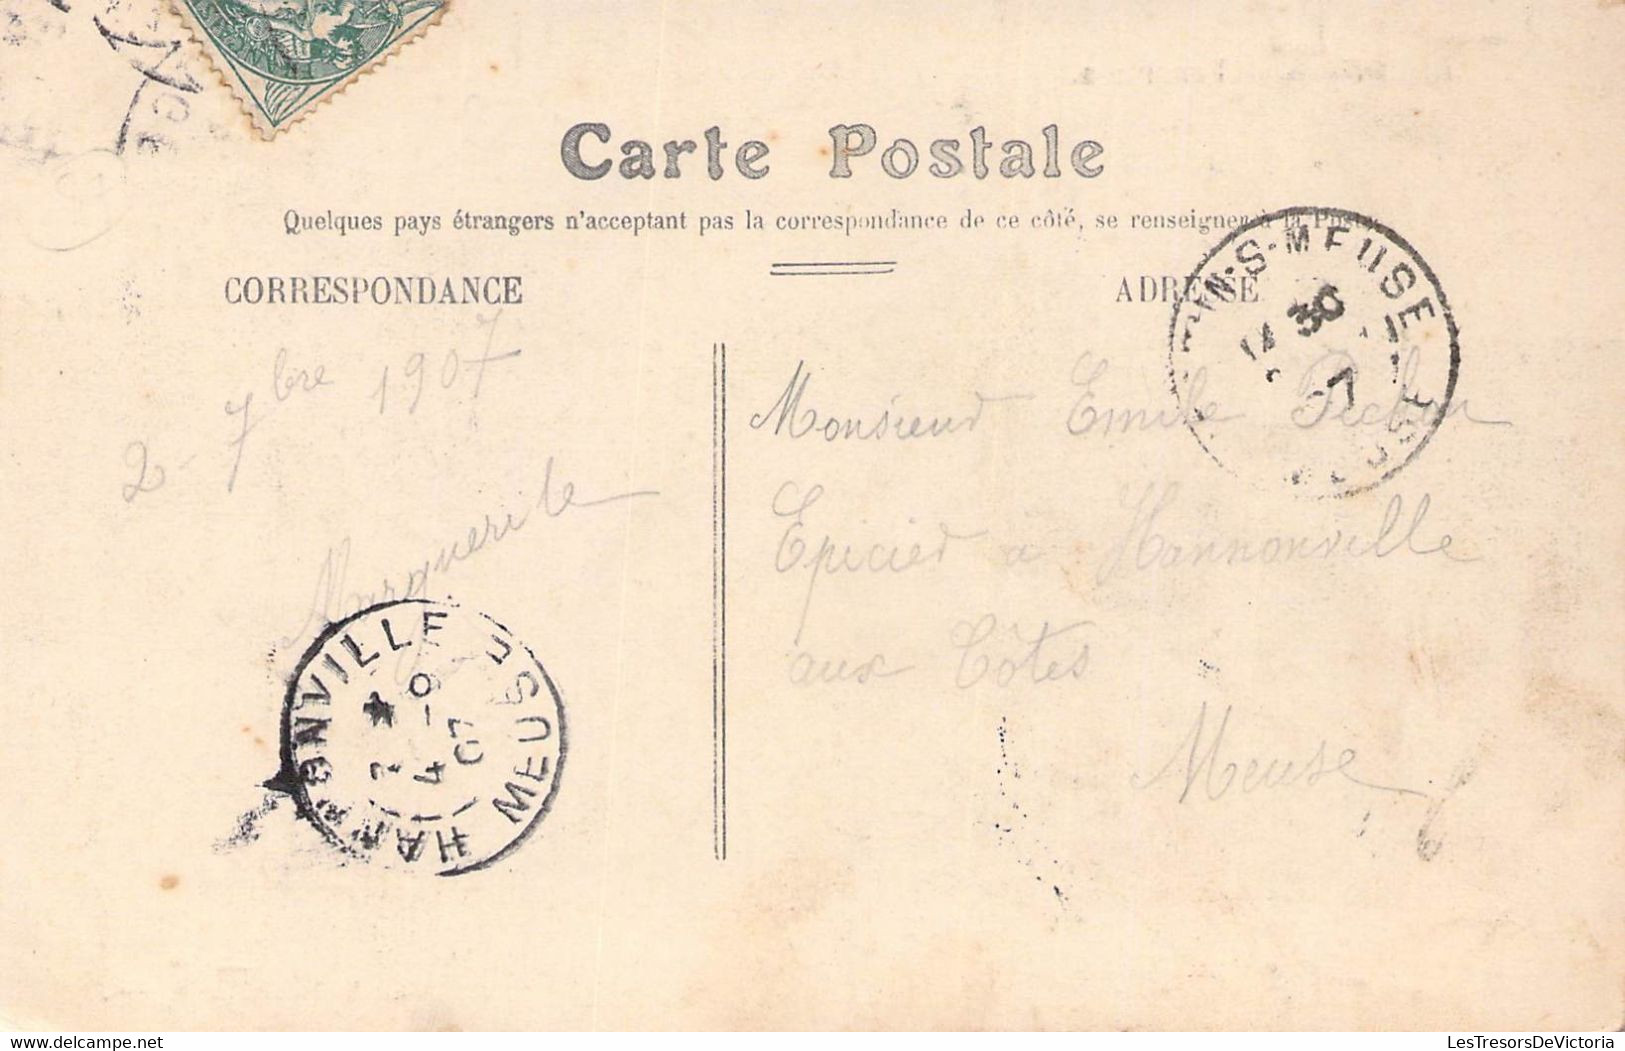 Carte Postale
Quelques pays étrangers n'acceptent pas la correspondance de ce côté, se renseigner à la Poste
CORRESPONDANCE
ADRESSE
2 - 7bre 1907
Marguerite
Monsieur Emile
Epicier à Hannonville
aux Côtes
Meuse
N-S-MEUSE
30
-7
HANNONVILLE
MEUSE
4 -9
07
LesTresorsDeVictoria